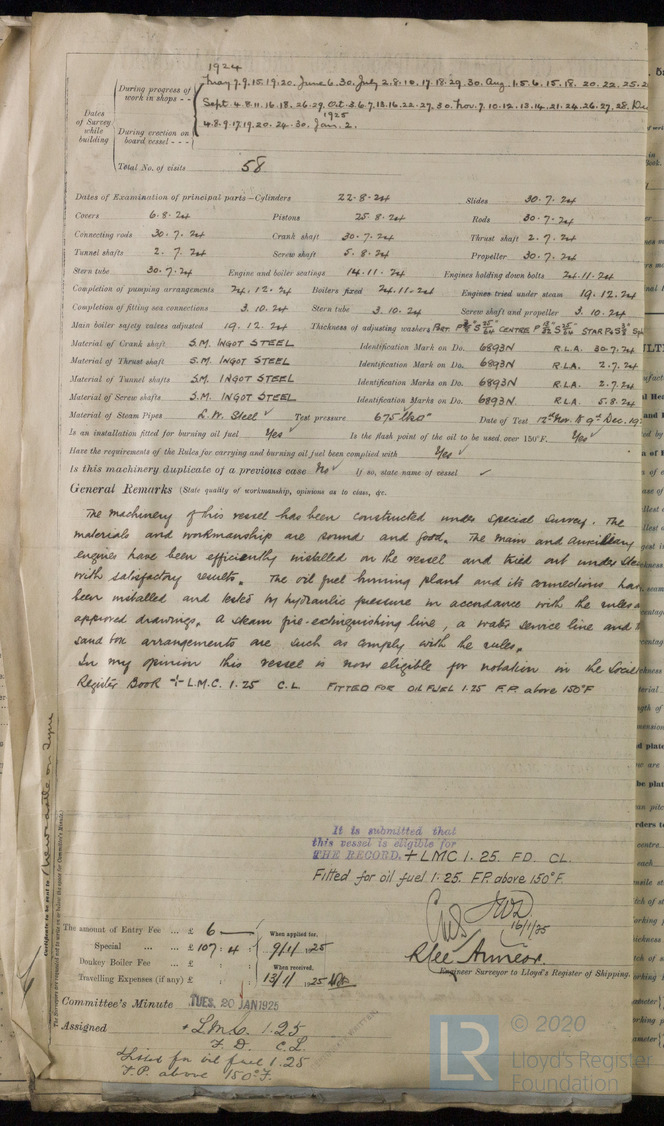 1924
During progress of work in shops - - May 7.9.15.19.20. June 6.30. July 2.8.10.17.18.29.30. Aug. 1.5.6.15.18.20.22.25.2
Sept. 4.8.11.16.18.26.29. Oct. 3.6.7.13.16.22.27.30. Nov. 7.10.12.13.14.21.24.26.27.28. De
1925
Dates of Survey while building
During erection on board vessel - - - 4.8.9.17.19.20.24.30. Jan. 2.
Total No. of visits 58
Dates of Examination of principal parts—Cylinders 22.8.24 Slides 30.7.24
Covers 6.8.24 Pistons 25.8.24 Rods 30.7.24
Connecting rods 30.7.24 Crank shaft 30.7.24 Thrust shaft 2.7.24
Tunnel shafts 2.7.24 Screw shaft 5.8.24 Propeller 30.7.24
Stern tube 30.7.24 Engine and boiler seatings 14.11.24 Engines holding down bolts 24.11.24
Completion of pumping arrangements 24.12.24 Boilers fixed 24.11.24 Engines tried under steam 19.12.24
Completion of fitting sea connections 3.10.24 Stern tube 3.10.24 Screw shaft and propeller 3.10.24
Main boiler safety valves adjusted 19.12.24 Thickness of adjusting washers PORT. CENTRE STAR
Material of Crank shaft S.M. INGOT STEEL Identification Mark on Do. 6893N R.L.A. 30.7.24
Material of Thrust shaft S.M. INGOT STEEL Identification Mark on Do. 6893N R.L.A. 2.7.24
Material of Tunnel shafts S.M. INGOT STEEL Identification Marks on Do. 6893N R.L.A. 2.7.24
Material of Screw shafts S.M. INGOT STEEL Identification Marks on Do. 6893N. R.L.A. 5.8.24
Material of Steam Pipes L.W. Steel ✓ Test pressure 675 lbs □" Date of Test 12th Nov. to 9th Dec. 19
Is an installation fitted for burning oil fuel Yes ✓ Is the flash point of the oil to be used over 150°F. Yes ✓
Have the requirements of the Rules for carrying and burning oil fuel been complied with Yes ✓
Is this machinery duplicate of a previous case No ✓ If so, state name of vessel ✓
General Remarks (State quality of workmanship, opinions as to class, &c.
The machinery of this vessel has been constructed under special survey. The
materials and workmanship are sound and good. The main and auxiliary
engines have been efficiently installed on the vessel and tried out under stea
with satisfactory results. The oil fuel burning plant and its connections hav
been installed and tested by hydraulic pressure in accordance with the rules a
approved drawings. A steam fire-extinguishing line, a water service line and
sand box arrangements are such as comply with the rules.
In my opinion this vessel is now eligible for notation in the Socie
Register Book + L.M.C. 1.25 C.L. FITTED FOR OIL FUEL 1.25 F.P. above 150°F
Certificate to be sent to Newcastle on Tyne
(The Surveyors are requested not to write on or below the space for Committee's Minute.)
It is submitted that
this vessel is eligible for
THE RECORD. + LMC 1.25. FD. CL.
Fitted for oil fuel 1.25. F.P. above 150°F.
16/1/25
The amount of Entry Fee ... £ 6 — When applied for.
Special ... ... £ 107 : 4 : 9/1/1925
Donkey Boiler Fee ... £ : : When received.
Travelling Expenses (if any) £ : : 13/1/1925
Engineer Surveyor to Lloyd's Register of Shipping.
Committee's Minute TUES. 20 JAN 1925
Assigned + L.M.C. 1.25
F.D. C.L.
Fitted for oil fuel 1.25
F.P. above 150°F.
LR
© 2020
Lloyd's Register
Foundation